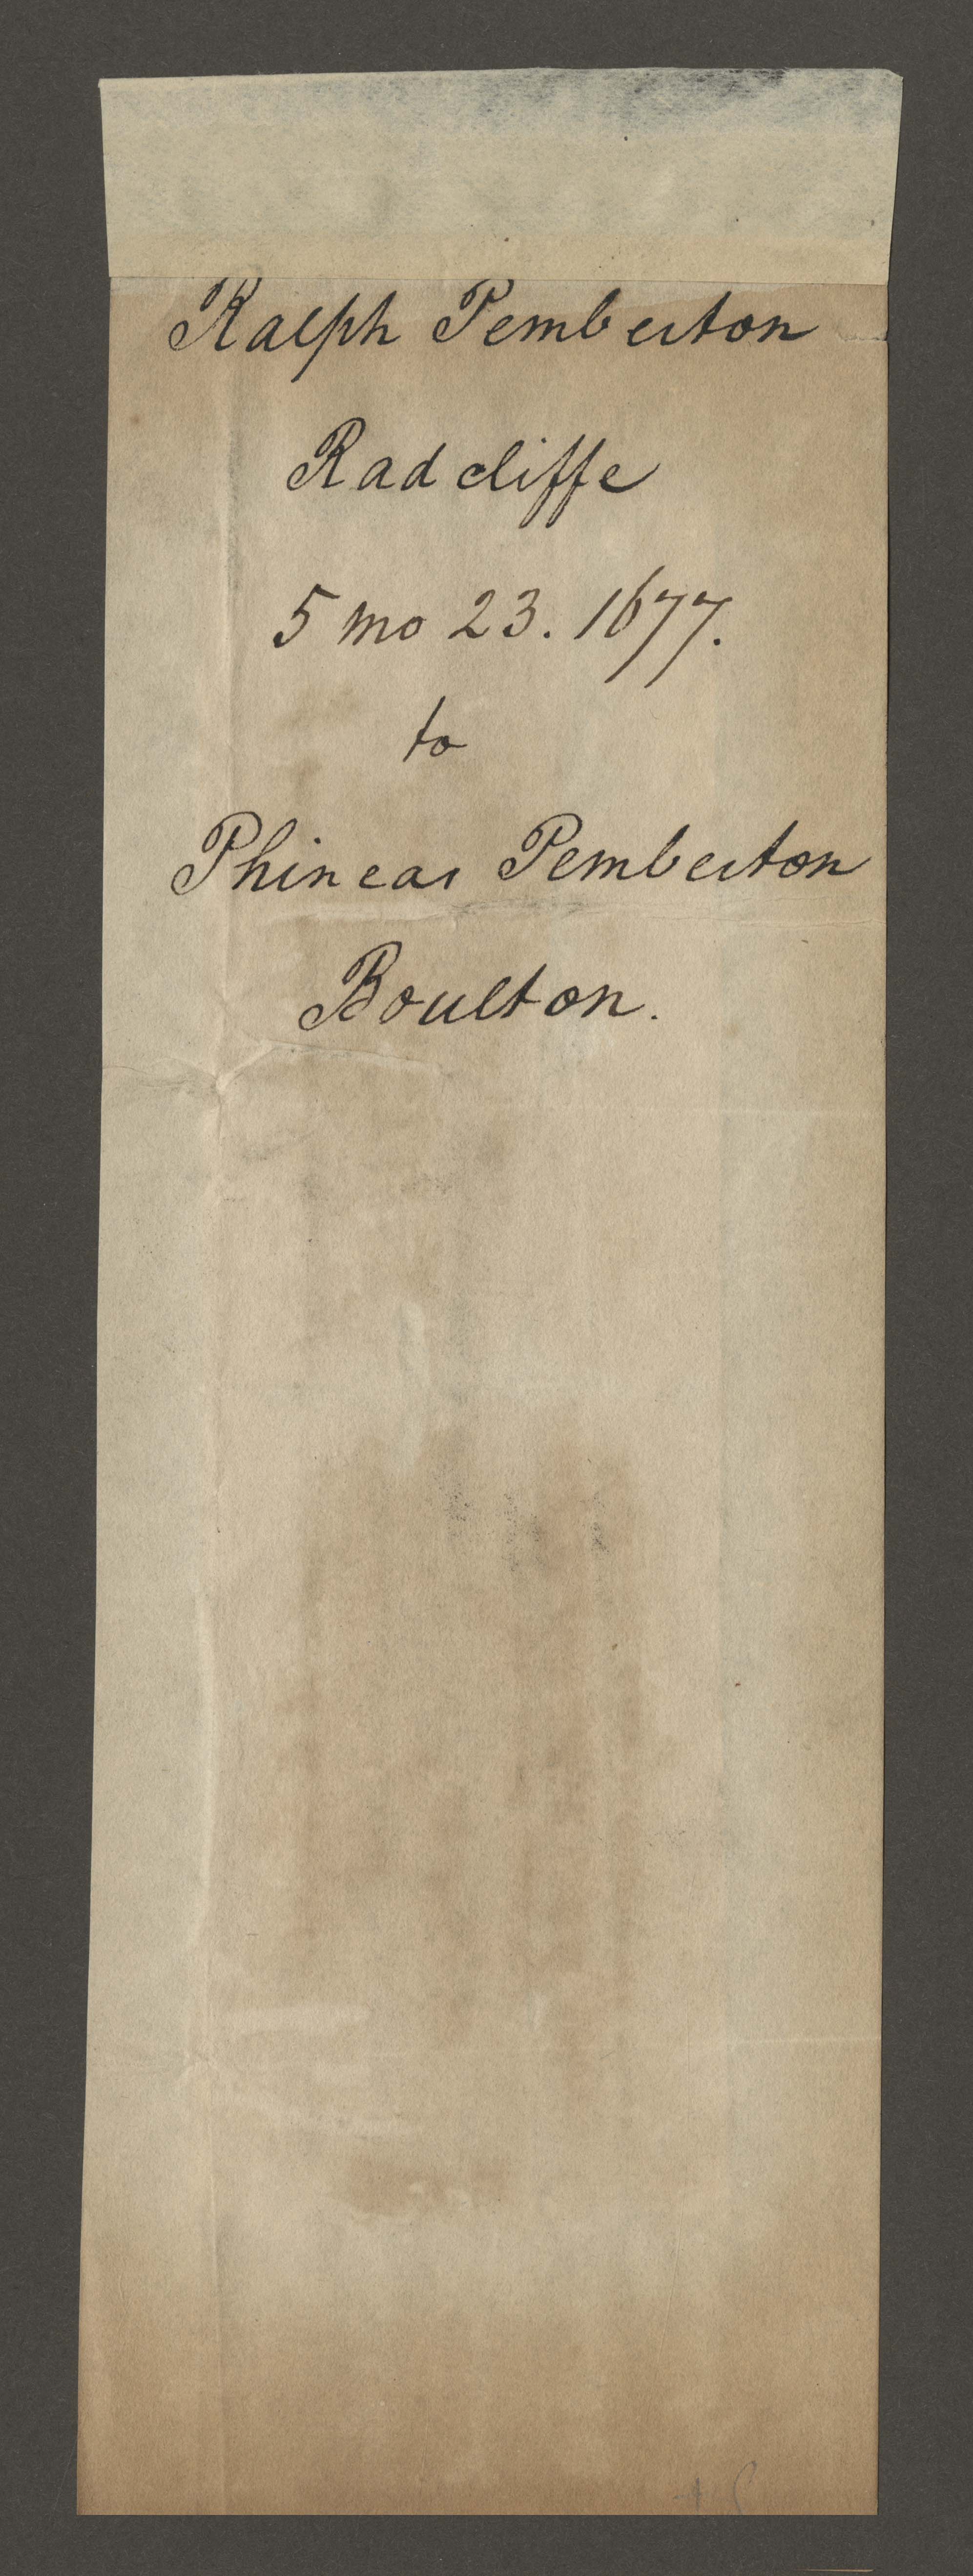 Ralph Pemberton
Radcliffe
5 mo 23. 1677.
to
Phineas Pemberton
Boulton.